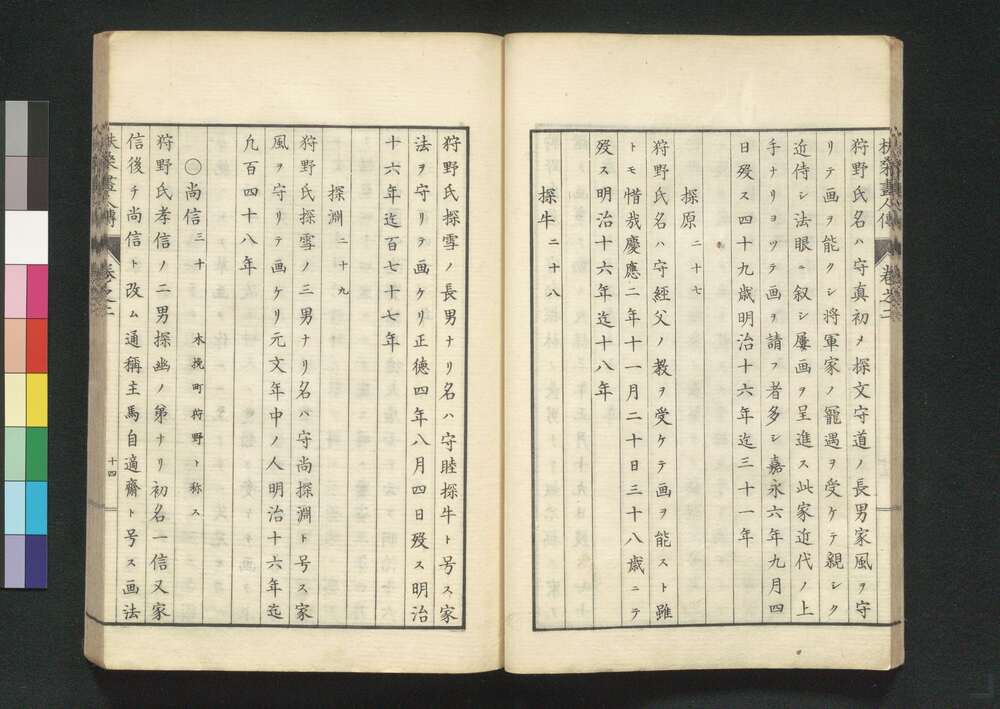 扶桑畫人傳 巻之二
狩野氏名ハ守真初メ探文守道ノ長男家風ヲ守
リテ画ヲ能クシ将軍家ノ寵遇ヲ受ケテ親シク
近侍シ法眼ニ叙シ屢画ヲ呈進ス此家近代ノ上
手ナリヨツテ画ヲ請フ者多シ嘉永六年九月四
日歿ス四十九歳明治十六年迄三十一年
探原 二十七
狩野氏名ハ守経父ノ教ヲ受ケテ画ヲ能スト雖
トモ惜哉慶應二年十一月二十日三十八歳ニテ
歿ス明治十六年迄十八年
探牛 二十八
狩野氏探雪ノ長男ナリ名ハ守睦探牛ト号ス家
法ヲ守リテ画ケリ正徳四年八月四日歿ス明治
十六年迄百七十七年
探淵 二十九
狩野氏探雪ノ三男ナリ名ハ守尚探淵ト号ス家
風ヲ守リテ画ケリ元文年中ノ人明治十六年迄
凢百四十八年
〇尚信 三十 木挽町狩野ト称ス
狩野氏孝信ノ二男探幽ノ弟ナリ初名一信又家
信後チ尚信ト改ム通稱主馬自適齋ト号ス画法
扶桑畫人傳 巻之二 十四